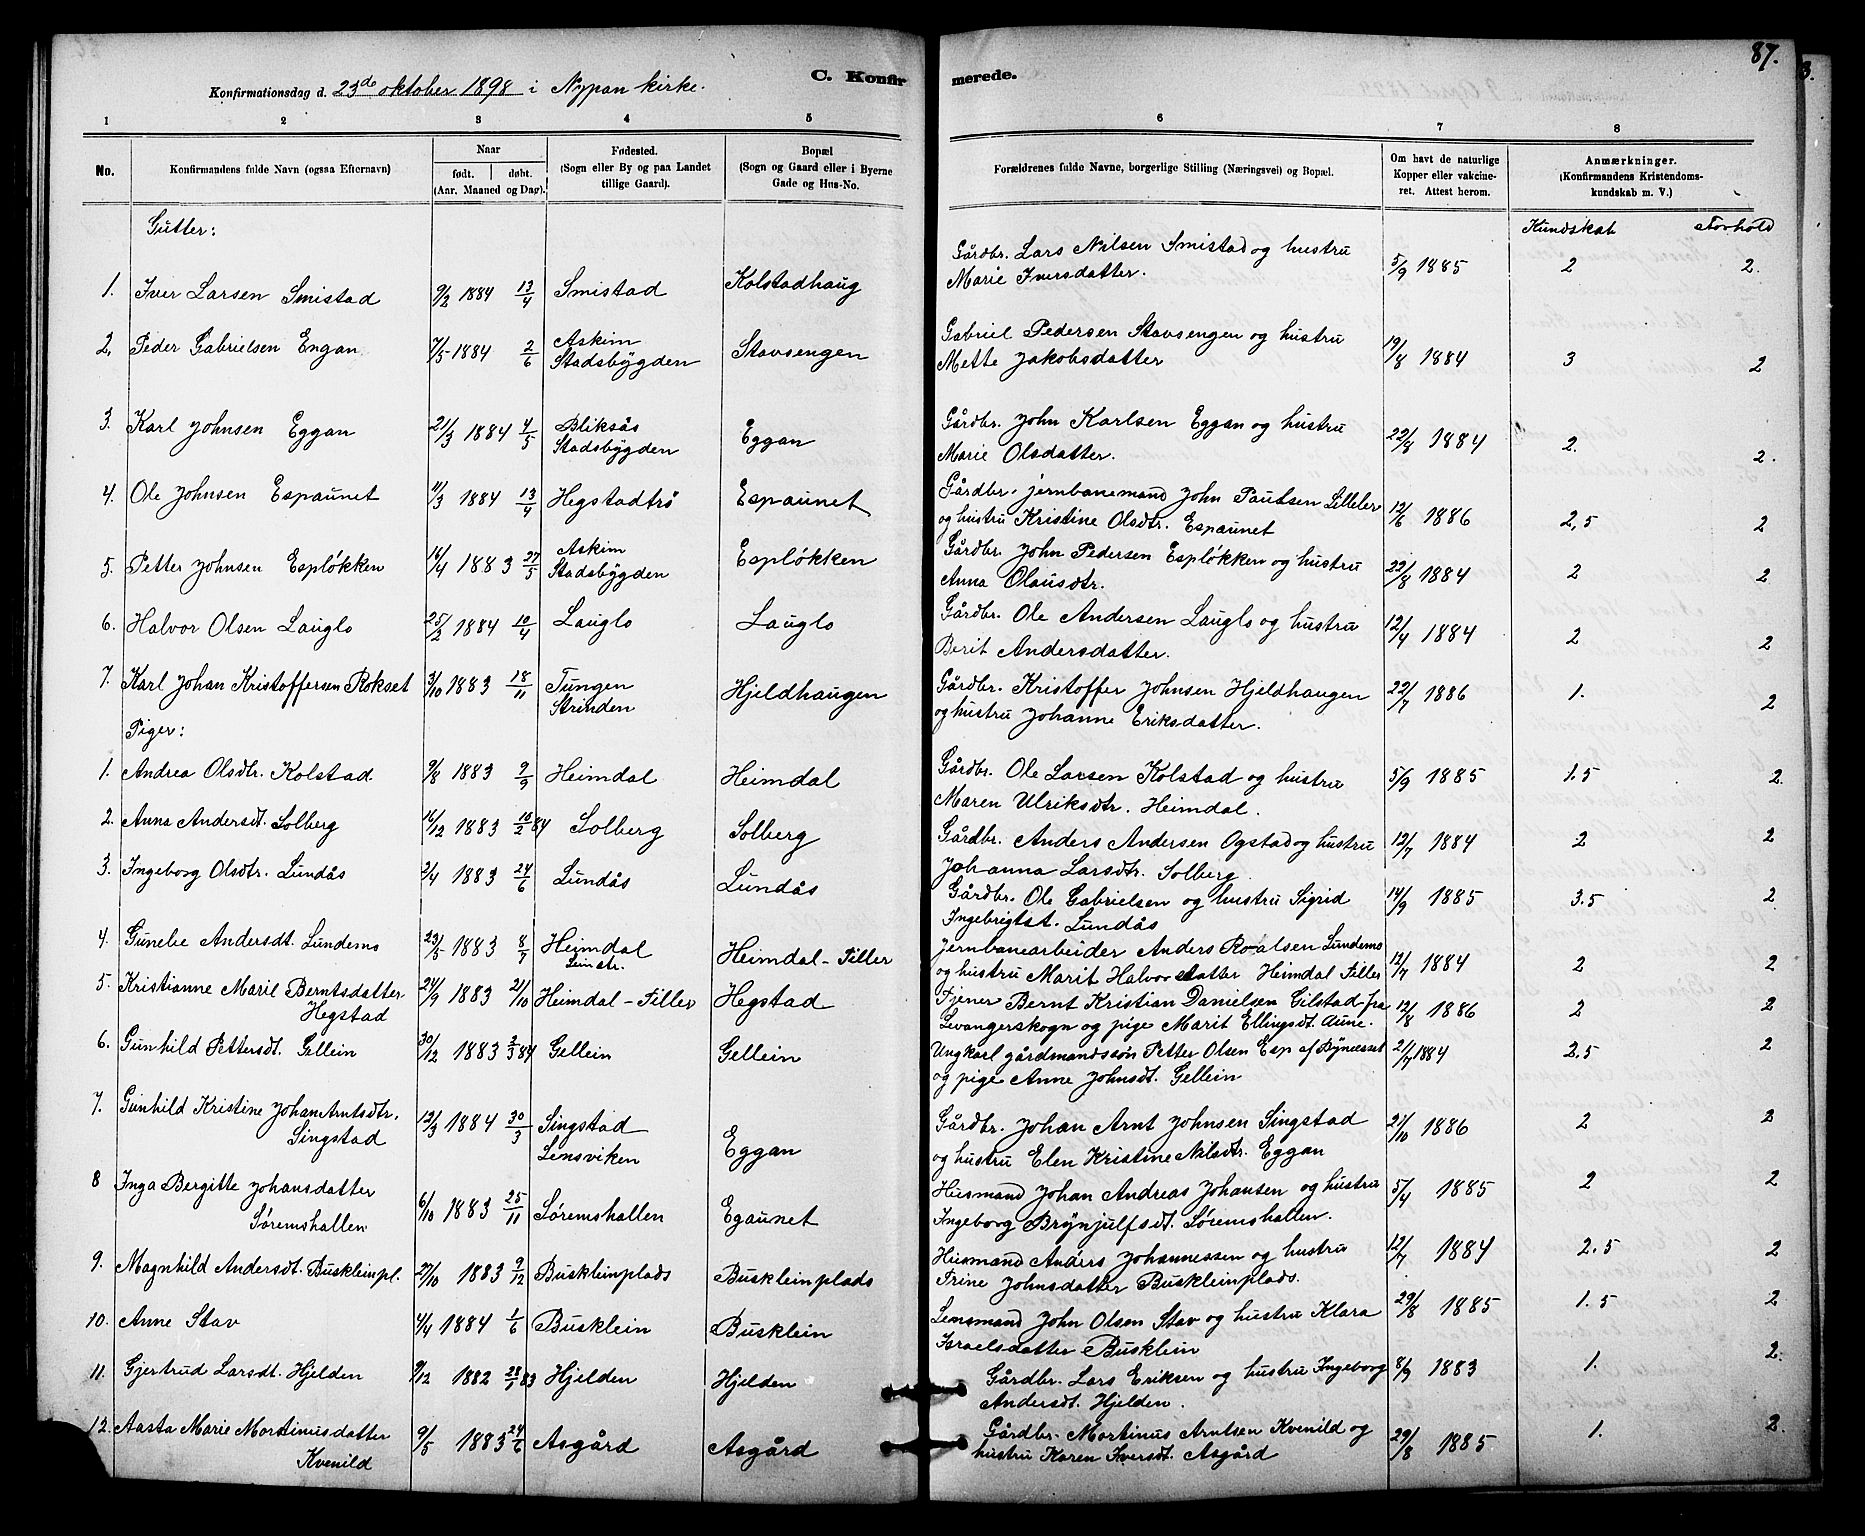 87.
C. Konfirmerede.
Konfirmationsdag d. 23de oktober 1898 i Nypan kirke.
1 2 3 4 5 6 7 8
No. Konfirmandens fulde Navn (ogsaa Efternavn) Naar født. døbt. (Aar. Maaned og Dag). Fødested. (Sogn eller By og paa Landet tillige Gaard). Bopæl (Sogn og Gaard eller i Byerne Gade og Hus-No. Forældrenes fulde Navne, borgerlige Stilling (Næringsvei) og Bopæl. Om havt de naturlige Kopper eller vakcineret. Attest herom. Anmærkninger. (Konfirmandens Kristendomskundskab m. V.)
Gutter: Kundskab Forhold
1. Iver Larsen Smistad 9/2 1884 13/4 Smistad Kolstadhaug Gårdbr. Lars Nilsen Smistad og hustru Marie Iversdatter. 5/9 1885 2 2.
2. Peder Gabrielsen Engan 7/5 1884 2/6 Askim Stadsbygden Stavsengen Gabriel Pedersen Stavsengen og hustru Mette Jakobsdatter 19/8 1884 3 2
3. Karl Johnsen Eggan 21/3 1884 4/5 Bliksås Stadsbygden Eggan Gårdbr. John Karlsen Eggan og hustru Marie Olsdatter. 22/8 1884 2. 2.
4. Ole Johnsen Espaunet 11/3 1884 13/4 Hegstadtrø Espaunet Gårdbr. jernbanemand John Paulsen og hustru Kristine Olsdtr. Espaunet 12/6 1886 2,5 2
5. Petter Johnsen Espløkken 14/4 1883 27/5 Askim Stadsbygden Espløkken Gårdbr. John Pedersen Espløkken og hustru Anna Olausdtr. 22/8 1884 2 2
6. Halvor Olsen Lauglo 25/2 1884 10/4 Lauglo Lauglo Gårdbr. Ole Andersen Lauglo og hustru Berit Andersdatter. 12/4 1884 2 2
7. Karl Johan Kristoffersen Rokset 3/10 1883 18/11 Tungen Strinden Hjeldhaugen Gårdbr. Kristoffer Johnsen Hjeldhaugen og hustru Johanne Eriksdatter. 22/7 1886 1. 2
Piger:
1. Andrea Olsdtr. Kolstad 9/8 1883 9/9 Heimdal Heimdal Gårdbr. Ole Larsen Kolstad og hustru Maren Ulriksdtr. Heimdal. 5/9 1885 1.5 2.
2. Anna Andersdt. Solberg 16/12 1883 10/2 84 Solberg Solberg Gårdbr. Anders Andersen Ogstad og hustru Johanna Larsdtr. Solberg 12/7 1884 2 2
3. Ingeborg Olsdtr. Lundås 2/4 1883 24/6 Lundås Lundås Gårdbr. Ole Gabrielsen og hustru Sigrid Ingebrigtst. Lundås 14/9 1885 3.5 2
4. Gunelie Andersdt. Lundemo 23/5 1883 8/7 Heimdal Leinstr. Heimdal-Tiller Jernbanearbeider Anders Roalsen Lundemo og hustru Marit Halvorsdatter Heimdal Tiller 12/7 1884 2 2
5. Kristianne Marie Berntsdatter Hegstad 24/9 1883 21/10 Heimdal-Tiller Hegstad Tjener Bernt Kristian Danielsen Gilstad fra Levangerskogn og pige Marit Ellingsdt. Aune. 12/8 1886 2 2
6. Gunhild Pettersdt. Gellein 30/12 1883 2/3 84 Gellein Gellein Ungkarl gårdmandssøn Petter Olsen Esp af Bynæsset og pige Anne Johnsdt. Gellein 21/7 1884 2.5 2
7. Gunhild Kristine Johan Arntsdtr. Singstad 12/3 1884 30/3 Singstad Lensviken Eggan Gårdbr. Johan Arnt Johnsen Singstad og hustru Elen Kristine Nilsdtr. Eggan 21/10 1886 2 2
8 Inga Bergitte Johansdatter Søremshallen 6/10 1883 25/11 Søremshallen Egaunet Husmand Johan Andreas Johansen og hustru Ingeborg Brynjulfsdt. Søremshallen. 5/4 1885 2 2
9. Magnhild Andersdt. Buskleinpl. 27/10 1883 9/12 Buskleinplads Buskleinplads Husmand Anders Johannessen og hustru Trine Johnsdatter Buskleinplads. 12/7 1884 2.5 2
10. Anne Stav 4/4 1884 1/6 Busklein Busklein Lensmand John Olsen Stav og hustru Klara Israelsdatter Busklein 29/8 1885 1.5 2
11. Gjertrud Larsdt. Hjelden 9/12 1882 28/1 83 Hjelden Hjelden Gårdbr. Lars Eriksen og hustru Ingeborg Andersdt. Hjelden. 8/9 1883 1. 2.
12. Aasta Marie Mortinusdatter Kvenild 9/5 1883 24/6 Asgård Asgård Gårdbr. Mortinus Arntsen Kvenild og hustru Karen Iversdt. Asgård 29/8 1885 1. 2.